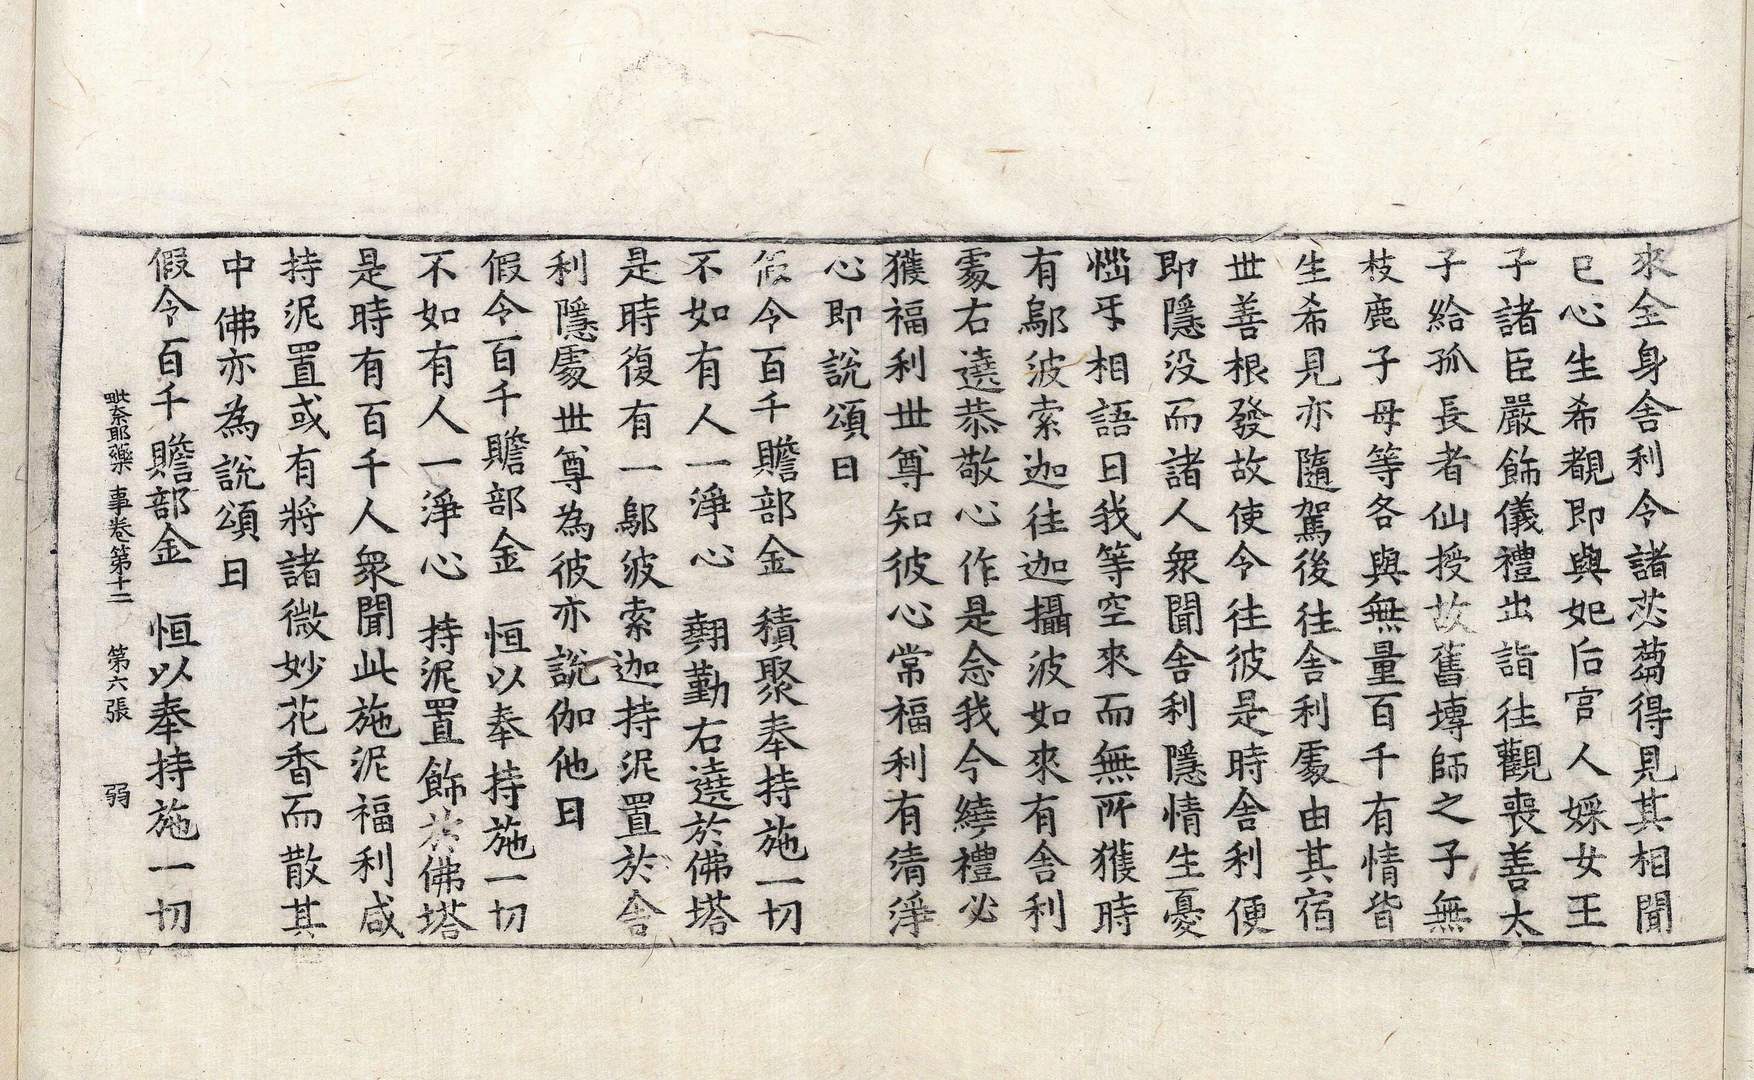 來全身舍利令諸苾蒭得見其相聞
已心生希覩即與妃后宮人婇女王
子諸臣嚴飾儀禮出詣往觀喪善太
子給孤長者仙授故舊塼師之子無
枝鹿子母等各與無量百千有情皆
生希見亦隨駕後往舍利處由其宿
世善根發故使令往彼是時舍利便
即隱没而諸人衆聞舍利隱情生憂
惱㸦相語曰我等空來而無所獲時
有鄔波索迦往迦攝波如來有舍利
處右遶恭敬心作是念我今繞禮必
獲福利世尊知彼心常福利有清淨
心即說頌曰
假令百千贍部金　積聚奉持施一切
不如有人一淨心　翹勤右遶於佛塔
是時復有一鄔波索迦持泥置於舍
利隱處世尊為彼亦說伽他曰
假令百千贍部金　恒以奉持施一切
不如有人一淨心　持泥置飾於佛塔
是時有百千人衆聞此施泥福利咸
持泥置或有將諸微妙花香而散其
中佛亦為說頌曰
假令百千贍部金　恒以奉持施一切
毗奈耶藥事卷第十二　第六張　弱